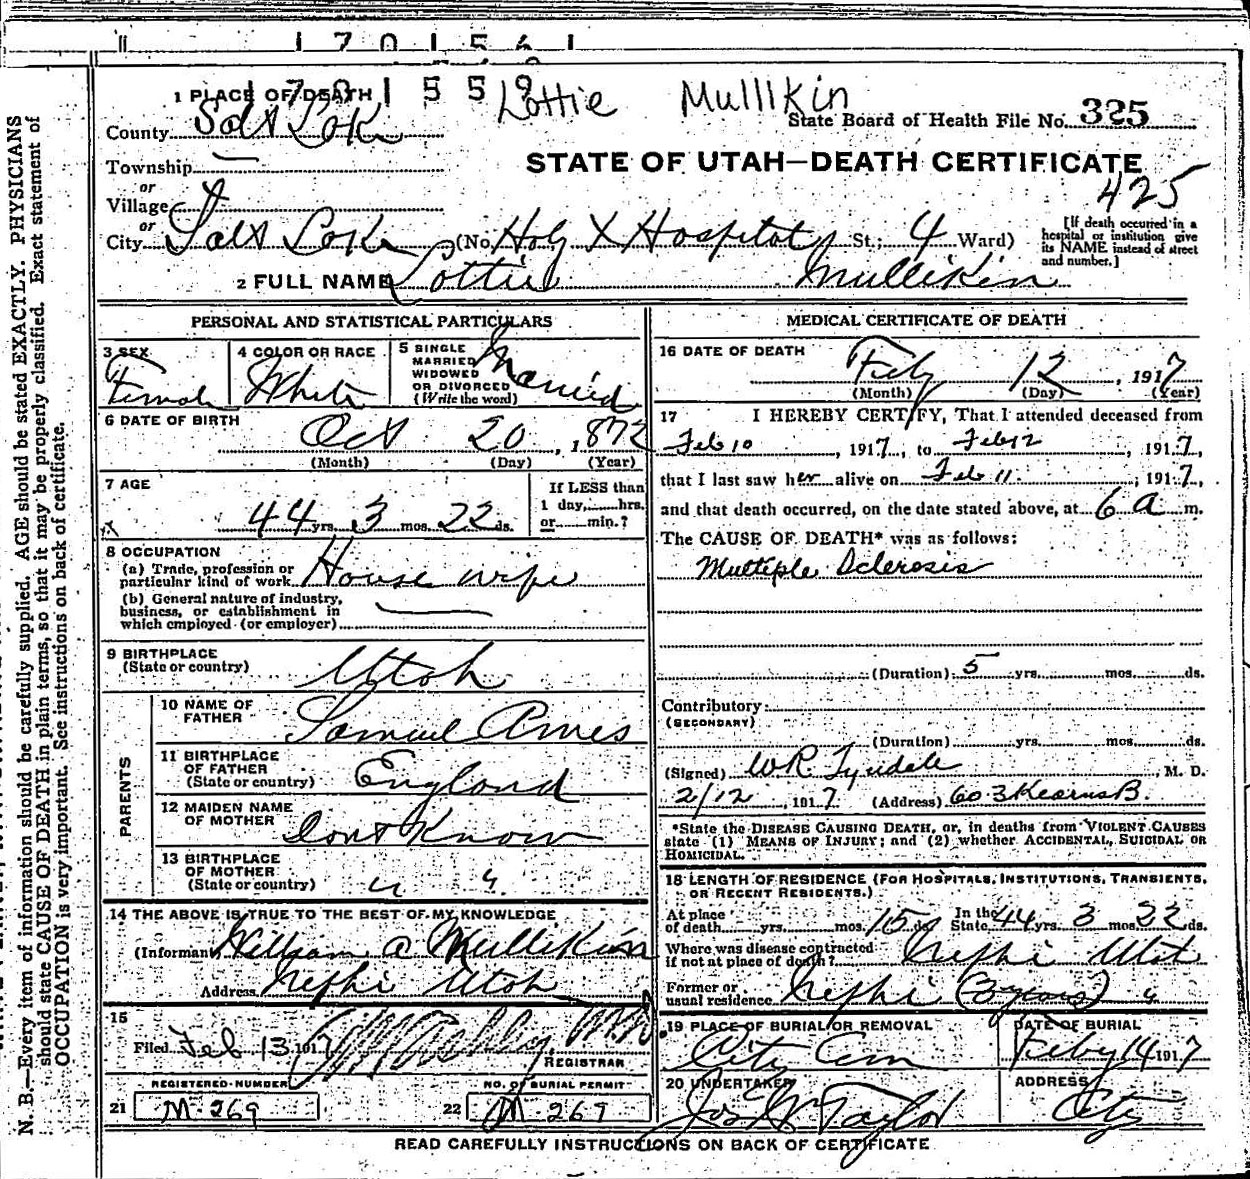 1 7 0 1 5 6 1
1 PLACE OF DEATH 1 7 0 1 5 5 9 Lottie Mullikin
County Salt Lake State Board of Health File No. 325
Township —
STATE OF UTAH—DEATH CERTIFICATE
or
Village
425
or
City Salt Lake (No. Holy X Hospital St.; 4 Ward)
[If death occurred in a hospital or institution give its NAME instead of street and number.]
2 FULL NAME Lottie Mullikin
PERSONAL AND STATISTICAL PARTICULARS
3 SEX
Female
4 COLOR OR RACE
White
5 SINGLE
MARRIED
WIDOWED
OR DIVORCED
(Write the word)
Married
6 DATE OF BIRTH
Oct 20, 1872
(Month) (Day) (Year)
7 AGE
44 yrs. 3 mos. 22 ds.
If LESS than
1 day,......hrs.
or......min.?
8 OCCUPATION
(a) Trade, profession or
particular kind of work House wife
(b) General nature of industry,
business, or establishment in
which employed (or employer)
9 BIRTHPLACE
(State or country) Utah
PARENTS
10 NAME OF
FATHER Samuel Ames
11 BIRTHPLACE
OF FATHER
(State or country) England
12 MAIDEN NAME
OF MOTHER Dont Know
13 BIRTHPLACE
OF MOTHER
(State or country) " "
14 THE ABOVE IS TRUE TO THE BEST OF MY KNOWLEDGE
(Informant William A Mullikin
Address Nephi Utah
15
Filed Feb 13 1917
REGISTRAR
REGISTERED NUMBER
21 M-269
NO. OF BURIAL PERMIT
22 M 269
MEDICAL CERTIFICATE OF DEATH
16 DATE OF DEATH
Feby 12, 1917
(Month) (Day) (Year)
17 I HEREBY CERTIFY, That I attended deceased from
Feb 10, 1917, to Feb 12, 1917,
that I last saw her alive on Feb 11, 1917,
and that death occurred, on the date stated above, at 6 a m.
The CAUSE OF DEATH* was as follows:
Multiple Sclerosis
(Duration) 5 yrs. mos. ds.
Contributory
(SECONDARY)
(Duration) yrs. mos. ds.
(Signed) W R Tyndale, M. D.
2/12, 1917 (Address) 603 Kearns B.
*State the DISEASE CAUSING DEATH, or, in deaths from VIOLENT CAUSES
state (1) MEANS OF INJURY; and (2) whether ACCIDENTAL, SUICIDAL OR
HOMICIDAL.
18 LENGTH OF RESIDENCE (FOR HOSPITALS, INSTITUTIONS, TRANSIENTS,
OR RECENT RESIDENTS.)
At place
of death yrs. mos. 15 ds. In the State 44 yrs. 3 mos. 22 ds.
Where was disease contracted
if not at place of death? Nephi Utah
Former or
usual residence Nephi (3 years) "
19 PLACE OF BURIAL OR REMOVAL
City Cem
DATE OF BURIAL
Feby 14 1917
20 UNDERTAKER
Jos Wm Taylor
ADDRESS
City
READ CAREFULLY INSTRUCTIONS ON BACK OF CERTIFICATE
N. B.—Every item of information should be carefully supplied. AGE should be stated EXACTLY. PHYSICIANS
should state CAUSE OF DEATH in plain terms, so that it may be properly classified. Exact statement of
OCCUPATION is very important. See instructions on back of certificate.